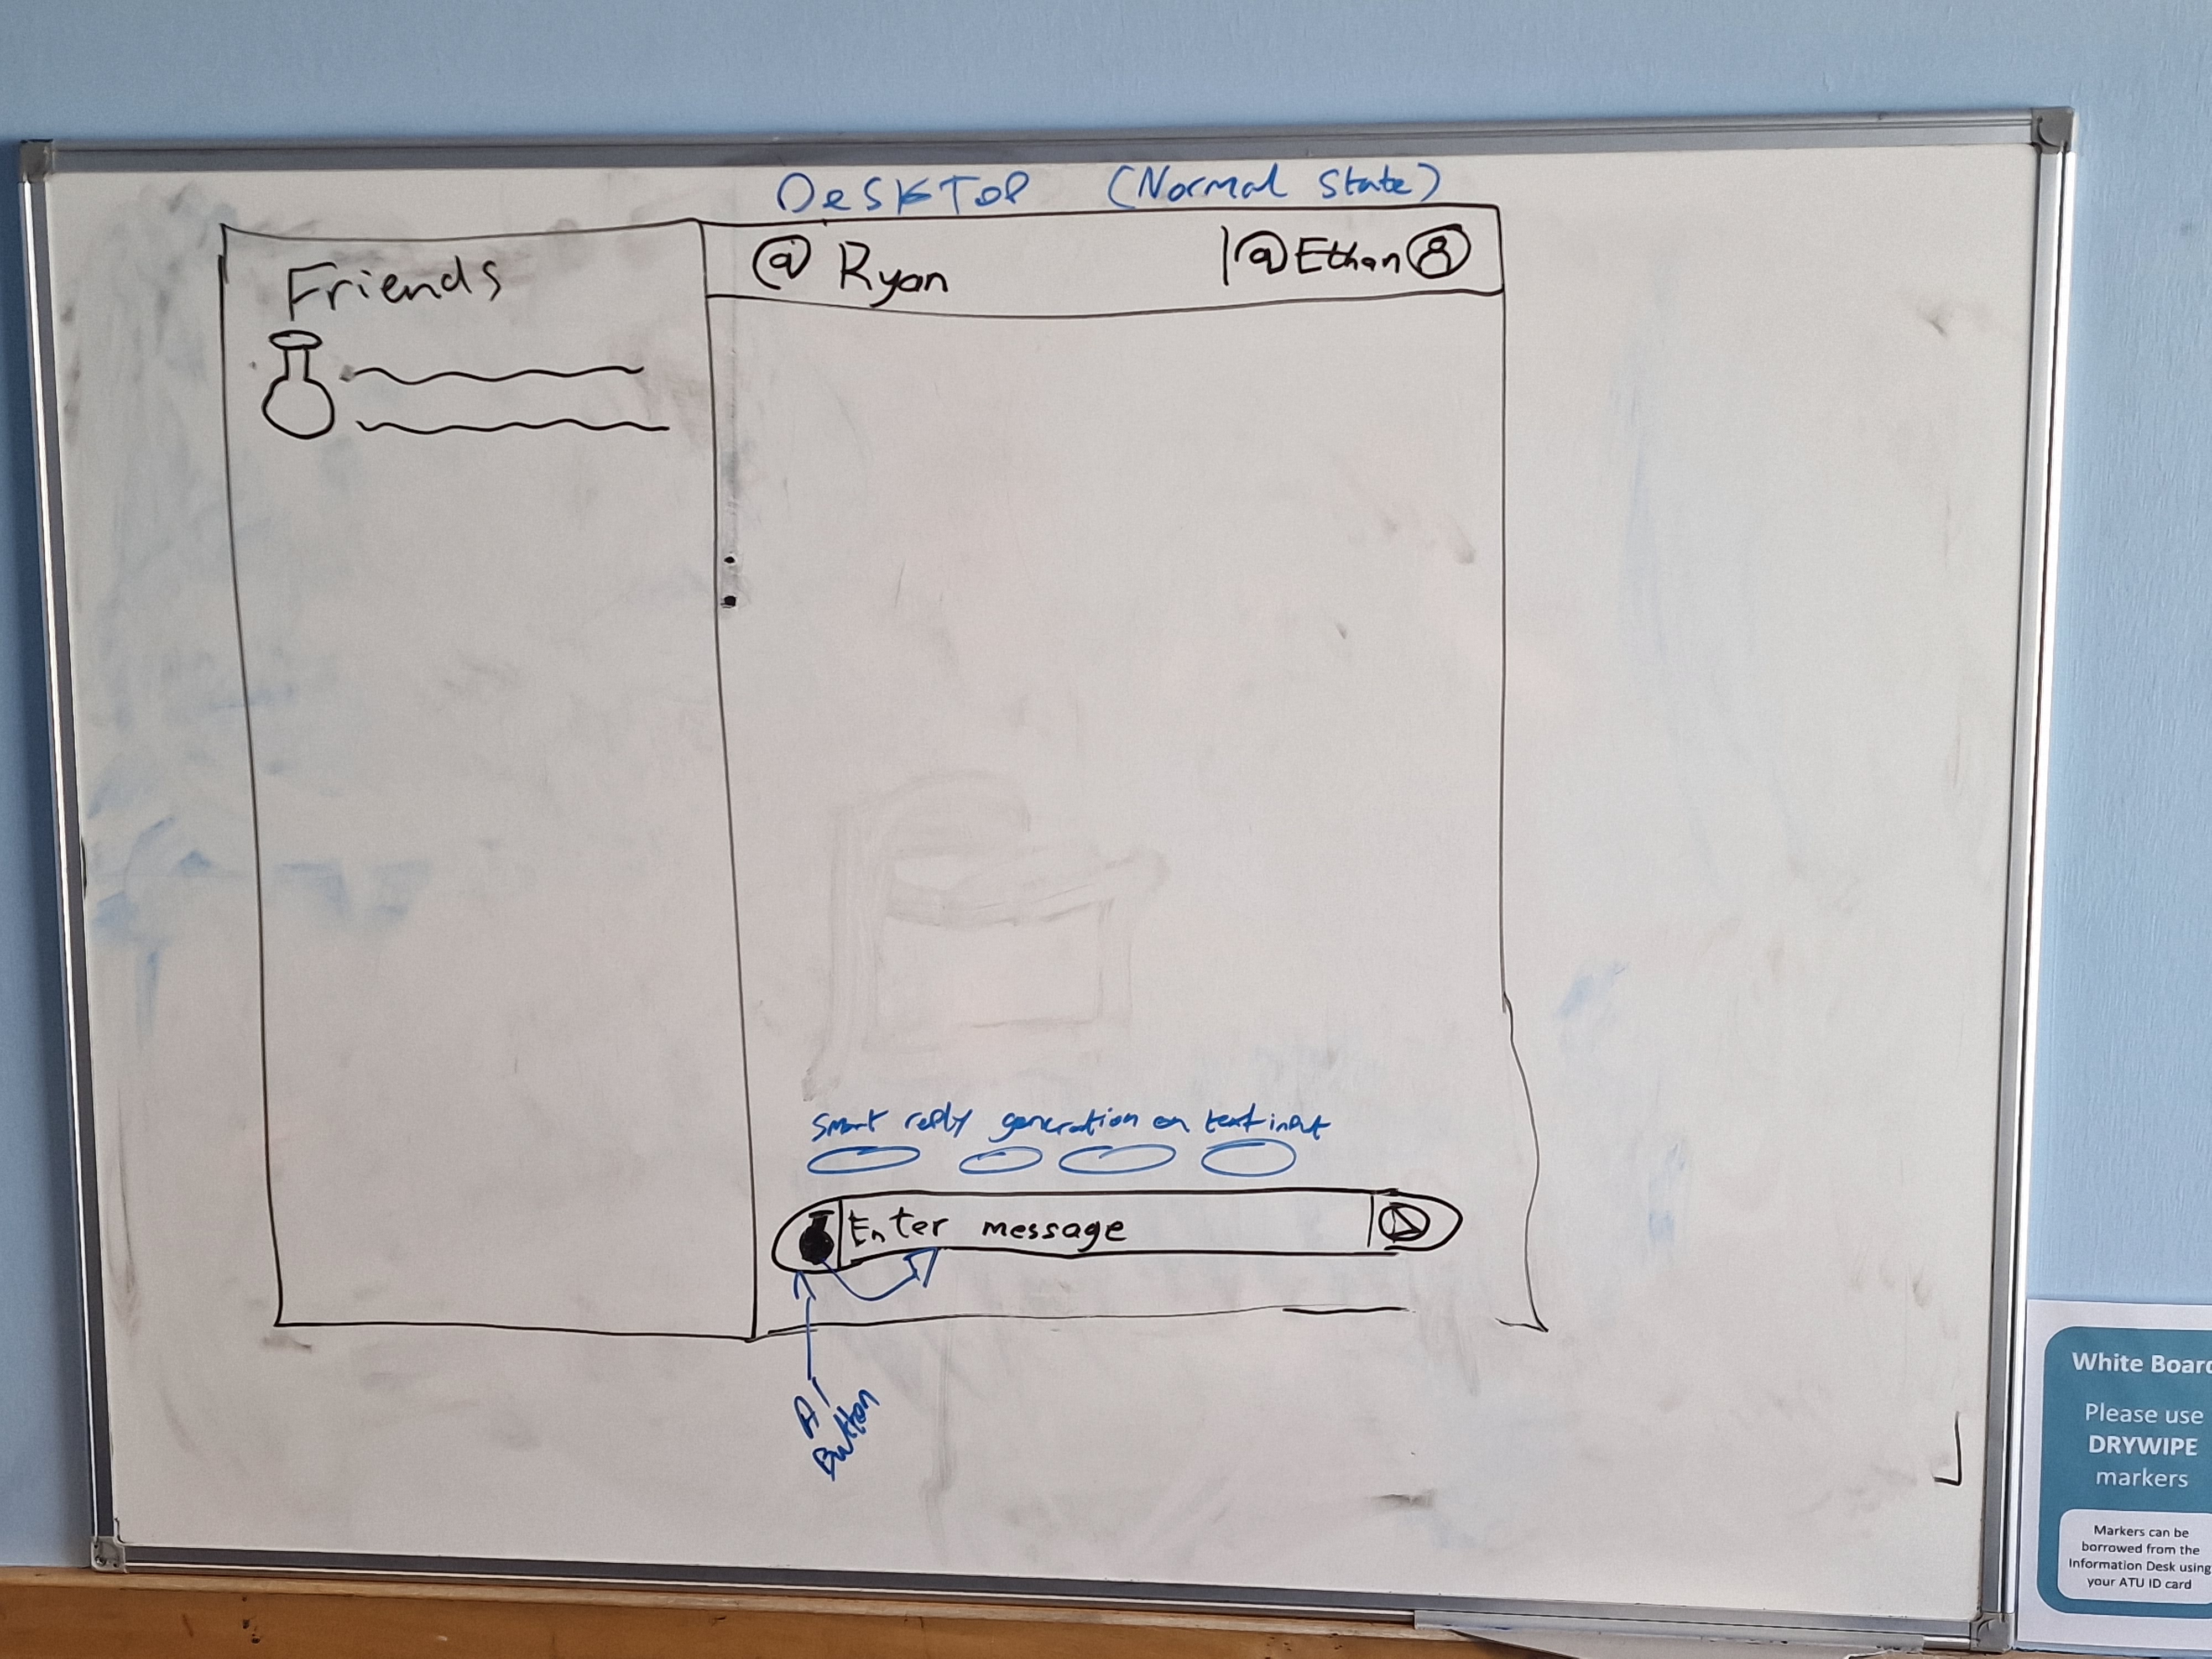 Desktop (Normal State)
Friends
@ Ryan
@Ethan
Smart reply generation on text input
Enter message
A
Button
White Board
Please use
DRYWIPE
markers
Markers can be
borrowed from the
Information Desk using
your ATU ID card